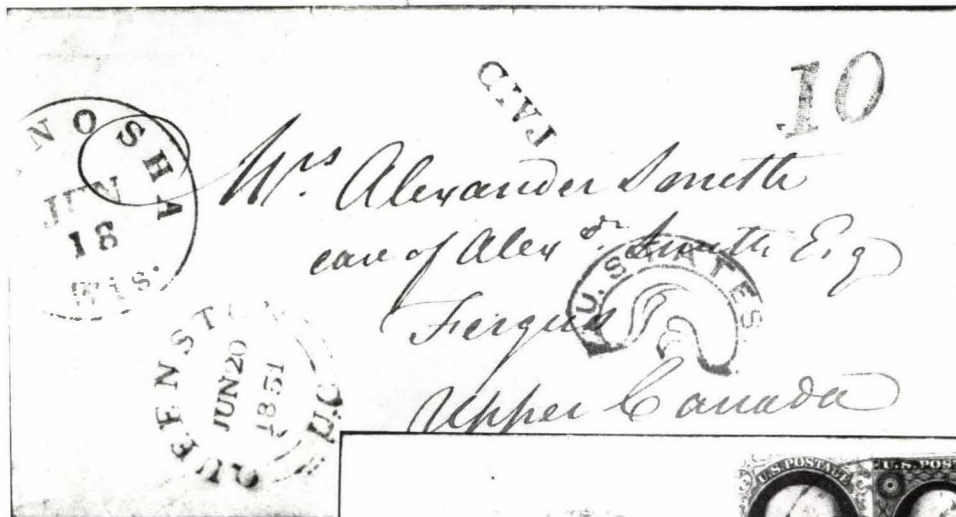 NOSHA
JUN
18
WIS.
PAID
10
Mrs Alexander Smith
care of Alexdr. Smith Esq
Fergus
Upper Canada
U. STATES
QUEENSTON U.C.
JUN 20
1851
U.S. POSTAGE
U.S. POST